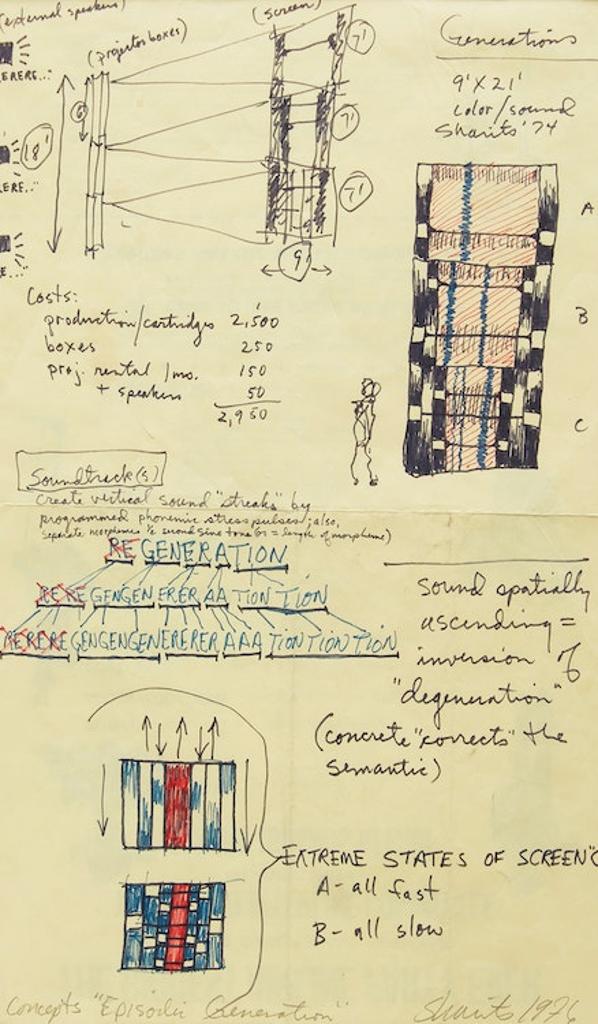 (external speakers)
(projector boxes)
(screen)
ERERE..."
ERE.."
E..."
18'
6'
7'
7'
7'
9'
Generations
9' X 21'
color/sound
Sharits '74
A
B
C
Costs:
production/cartridges 2,500
boxes 250
proj. rental /mo. 150
+ speakers 50
2,950
Soundtrack(s)
create vertical sound "streaks" by
programmed phonemic stress pulses; also,
separate morphemes ½ second sine tone (or = length of morpheme)
RE GENERATION
RE RE GENGEN ERER AA TION TION
RERERE GENGENGEN ERERER AAA TION TION TION
sound spatially
ascending =
inversion of
"degeneration"
(concrete "corrects" the
semantic)
EXTREME STATES OF SCREEN "C
A - all fast
B - all slow
Concepts "Episodic Generation"
Sharits 1976